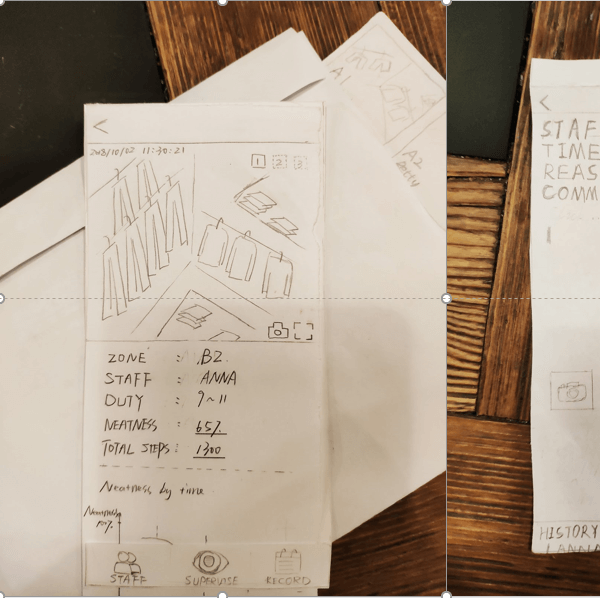 <
2018/10/02 11:30:21
1 2 3
ZONE : B2.
STAFF : ANNA
DUTY : 9~11
NEATNESS : 65%
TOTAL STEPS : 1300
Neatness by time
Neatness
STAFF SUPERVISE RECORD
A1
A2
<
STAF
TIME
REAS
COMM
HISTORY